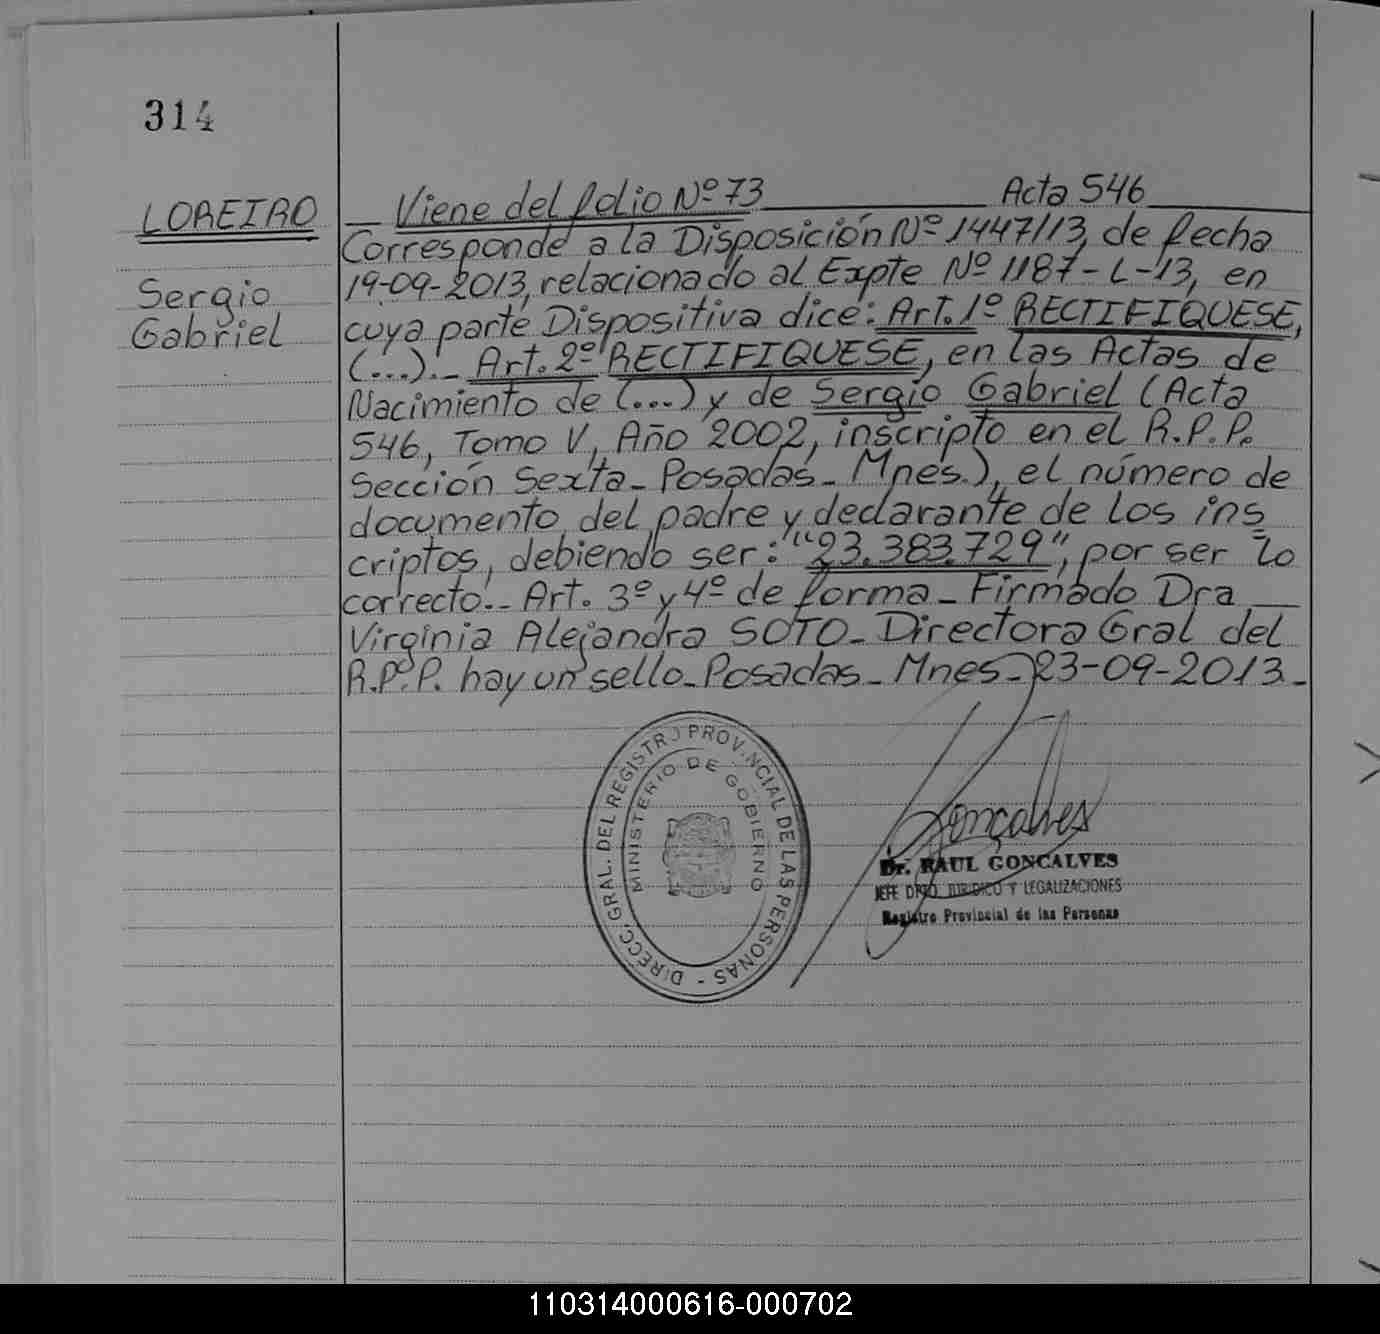 314
LOREIRO
Sergio
Gabriel
Viene del folio Nº 73 Acta 546
Corresponde a la Disposición Nº 1447/13, de fecha
19-09-2013, relacionado al Expte Nº 1187-L-13, en
cuya parte Dispositiva dice: Art. 1º RECTIFIQUESE,
(...)._ Art. 2º RECTIFIQUESE, en las Actas de
Nacimiento de (...) y de Sergio Gabriel (Acta
546, Tomo V, Año 2002, inscripto en el R.P.P.
Sección Sexta_ Posadas_ Mnes.), el número de
documento del padre y declarante de los ins
criptos, debiendo ser: "23.383.729", por ser lo
correcto._ Art. 3º y 4º de forma_ Firmado Dra
Virginia Alejandra SOTO_ Directora Gral del
R.P.P. hay un sello_ Posadas_ Mnes_ 23-09-2013_
DIRECC. GRAL. DEL REGISTRO PROVINCIAL DE LAS PERSONAS -
MINISTERIO DE GOBIERNO
Goncalves
Dr. RAUL GONCALVES
JEFE DPTO. JURIDICO Y LEGALIZACIONES
Registro Provincial de las Personas
110314000616-000702